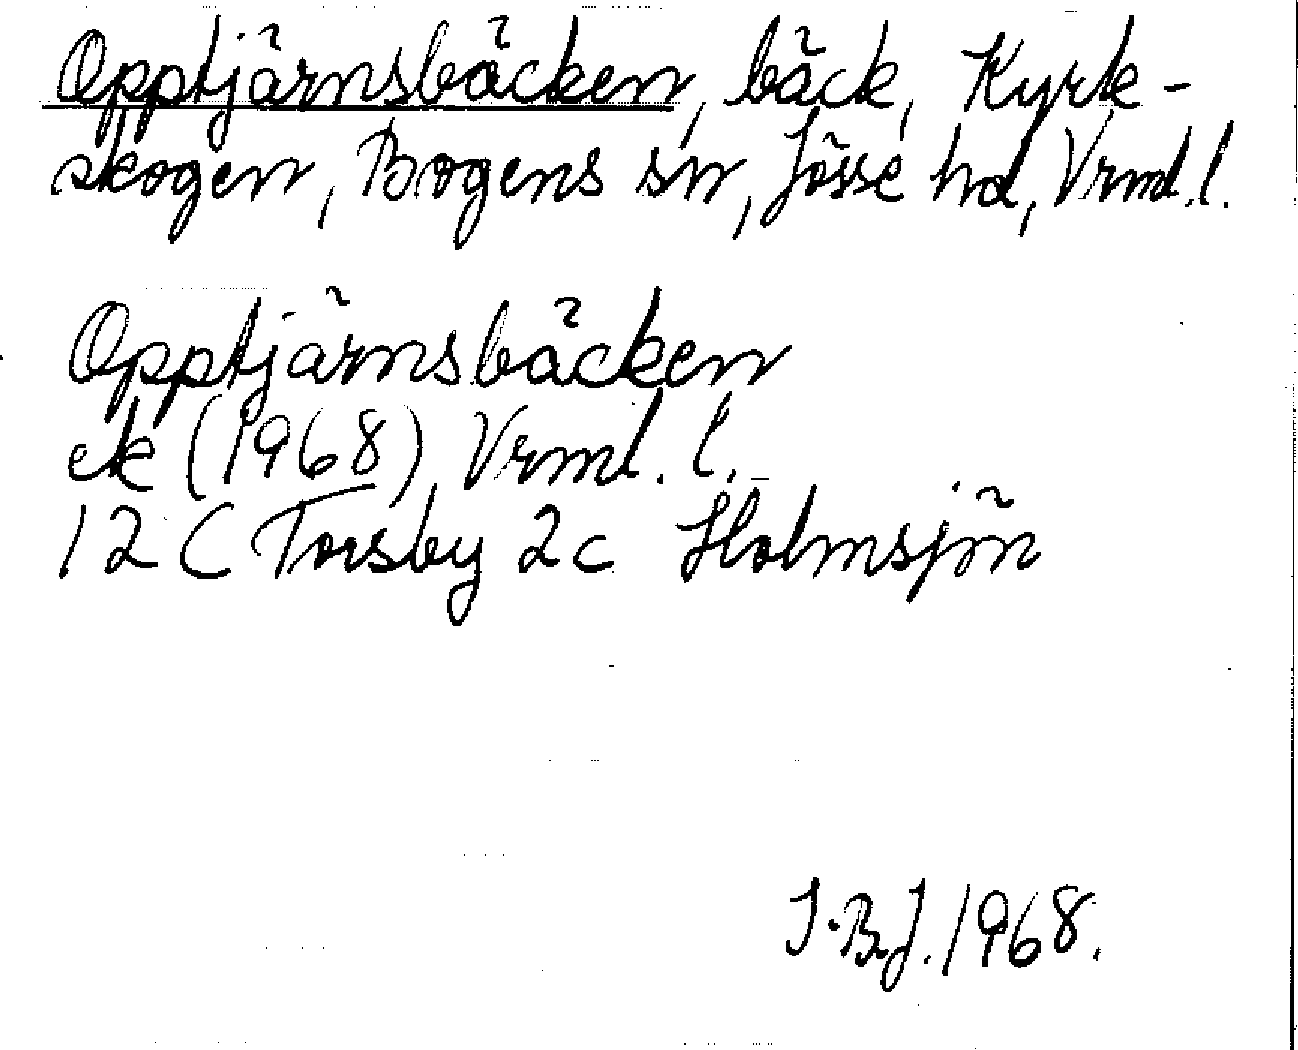 Opptjärnsbäcken, bäck, Kyrk-
skogen, Bogens sn, Jösse hd, Vrml. l.
Opptjärnsbäcken
ek (1968) Vrml. l.
12 C Torsby 2c Holmsjön
I.B.J. 1968.